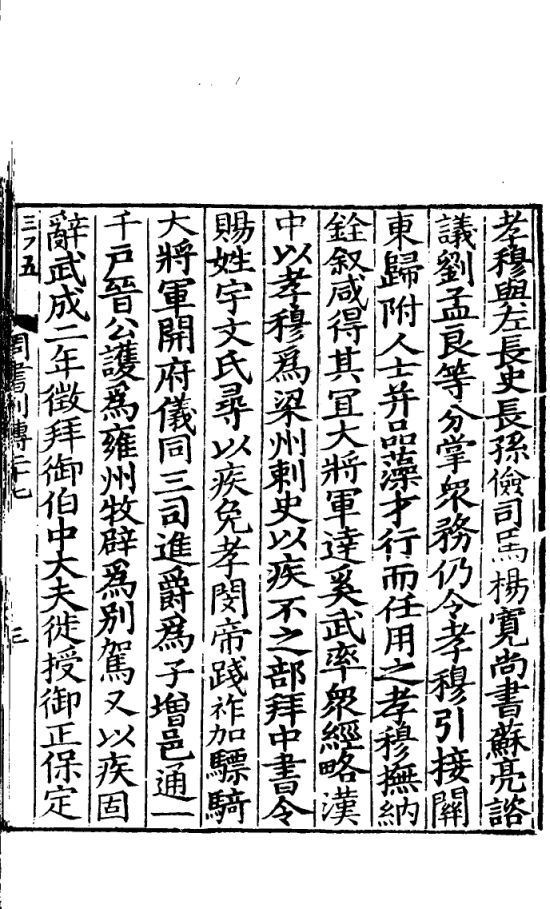 孝穆與左長史長孫儉司馬楊寬尚書蘇亮諮
議劉孟良等分掌衆務仍令孝穆引接關
東歸附人士并品藻才行而任用之孝穆撫納
銓叙咸得其宜大將軍達奚武率衆經略漢
中以孝穆爲梁州刺史以疾不之部拜中書令
賜姓宇文氏尋以疾免孝閔帝踐祚加驃騎
大將軍開府儀同三司進爵爲子增邑通一
千戸晉公護爲雍州牧辟爲别駕又以疾固
辭武成二年徵拜御伯中大夫徙授御正保定
周書列傳二十七
三